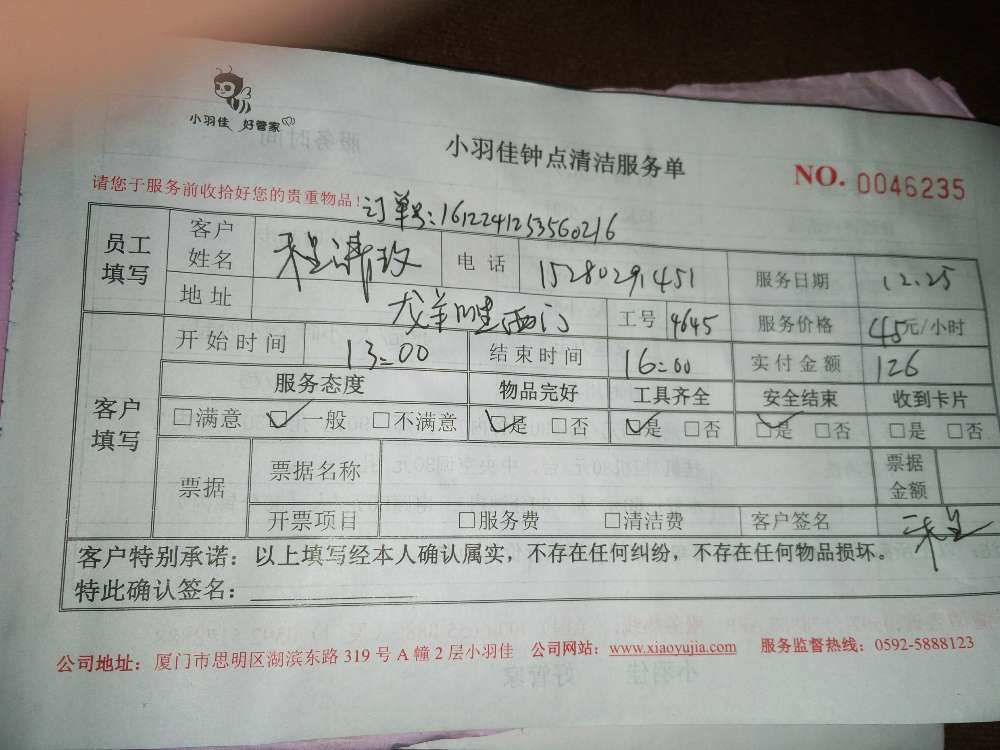 小羽佳 好管家
小羽佳钟点清洁服务单
NO. 0046235
请您于服务前收拾好您的贵重物品!
订单号:1612241253560216
员工填写 客户姓名 电话 15280291451 服务日期 12.25
地址 西门 工号 4645 服务价格 45元/小时
客户填写 开始时间 13:00 结束时间 16:00 实付金额 126
服务态度 物品完好 工具齐全 安全结束 收到卡片
□满意 ☑一般 □不满意 ☑是 □否 ☑是 □否 ☑是 □否 □是 □否
票据 票据名称 票据金额
开票项目 □服务费 □清洁费 客户签名
客户特别承诺:以上填写经本人确认属实,不存在任何纠纷,不存在任何物品损坏。
特此确认签名:
公司地址:厦门市思明区湖滨东路 319 号 A 幢 2 层小羽佳 公司网站:www.xiaoyujia.com 服务监督热线:0592-5888123